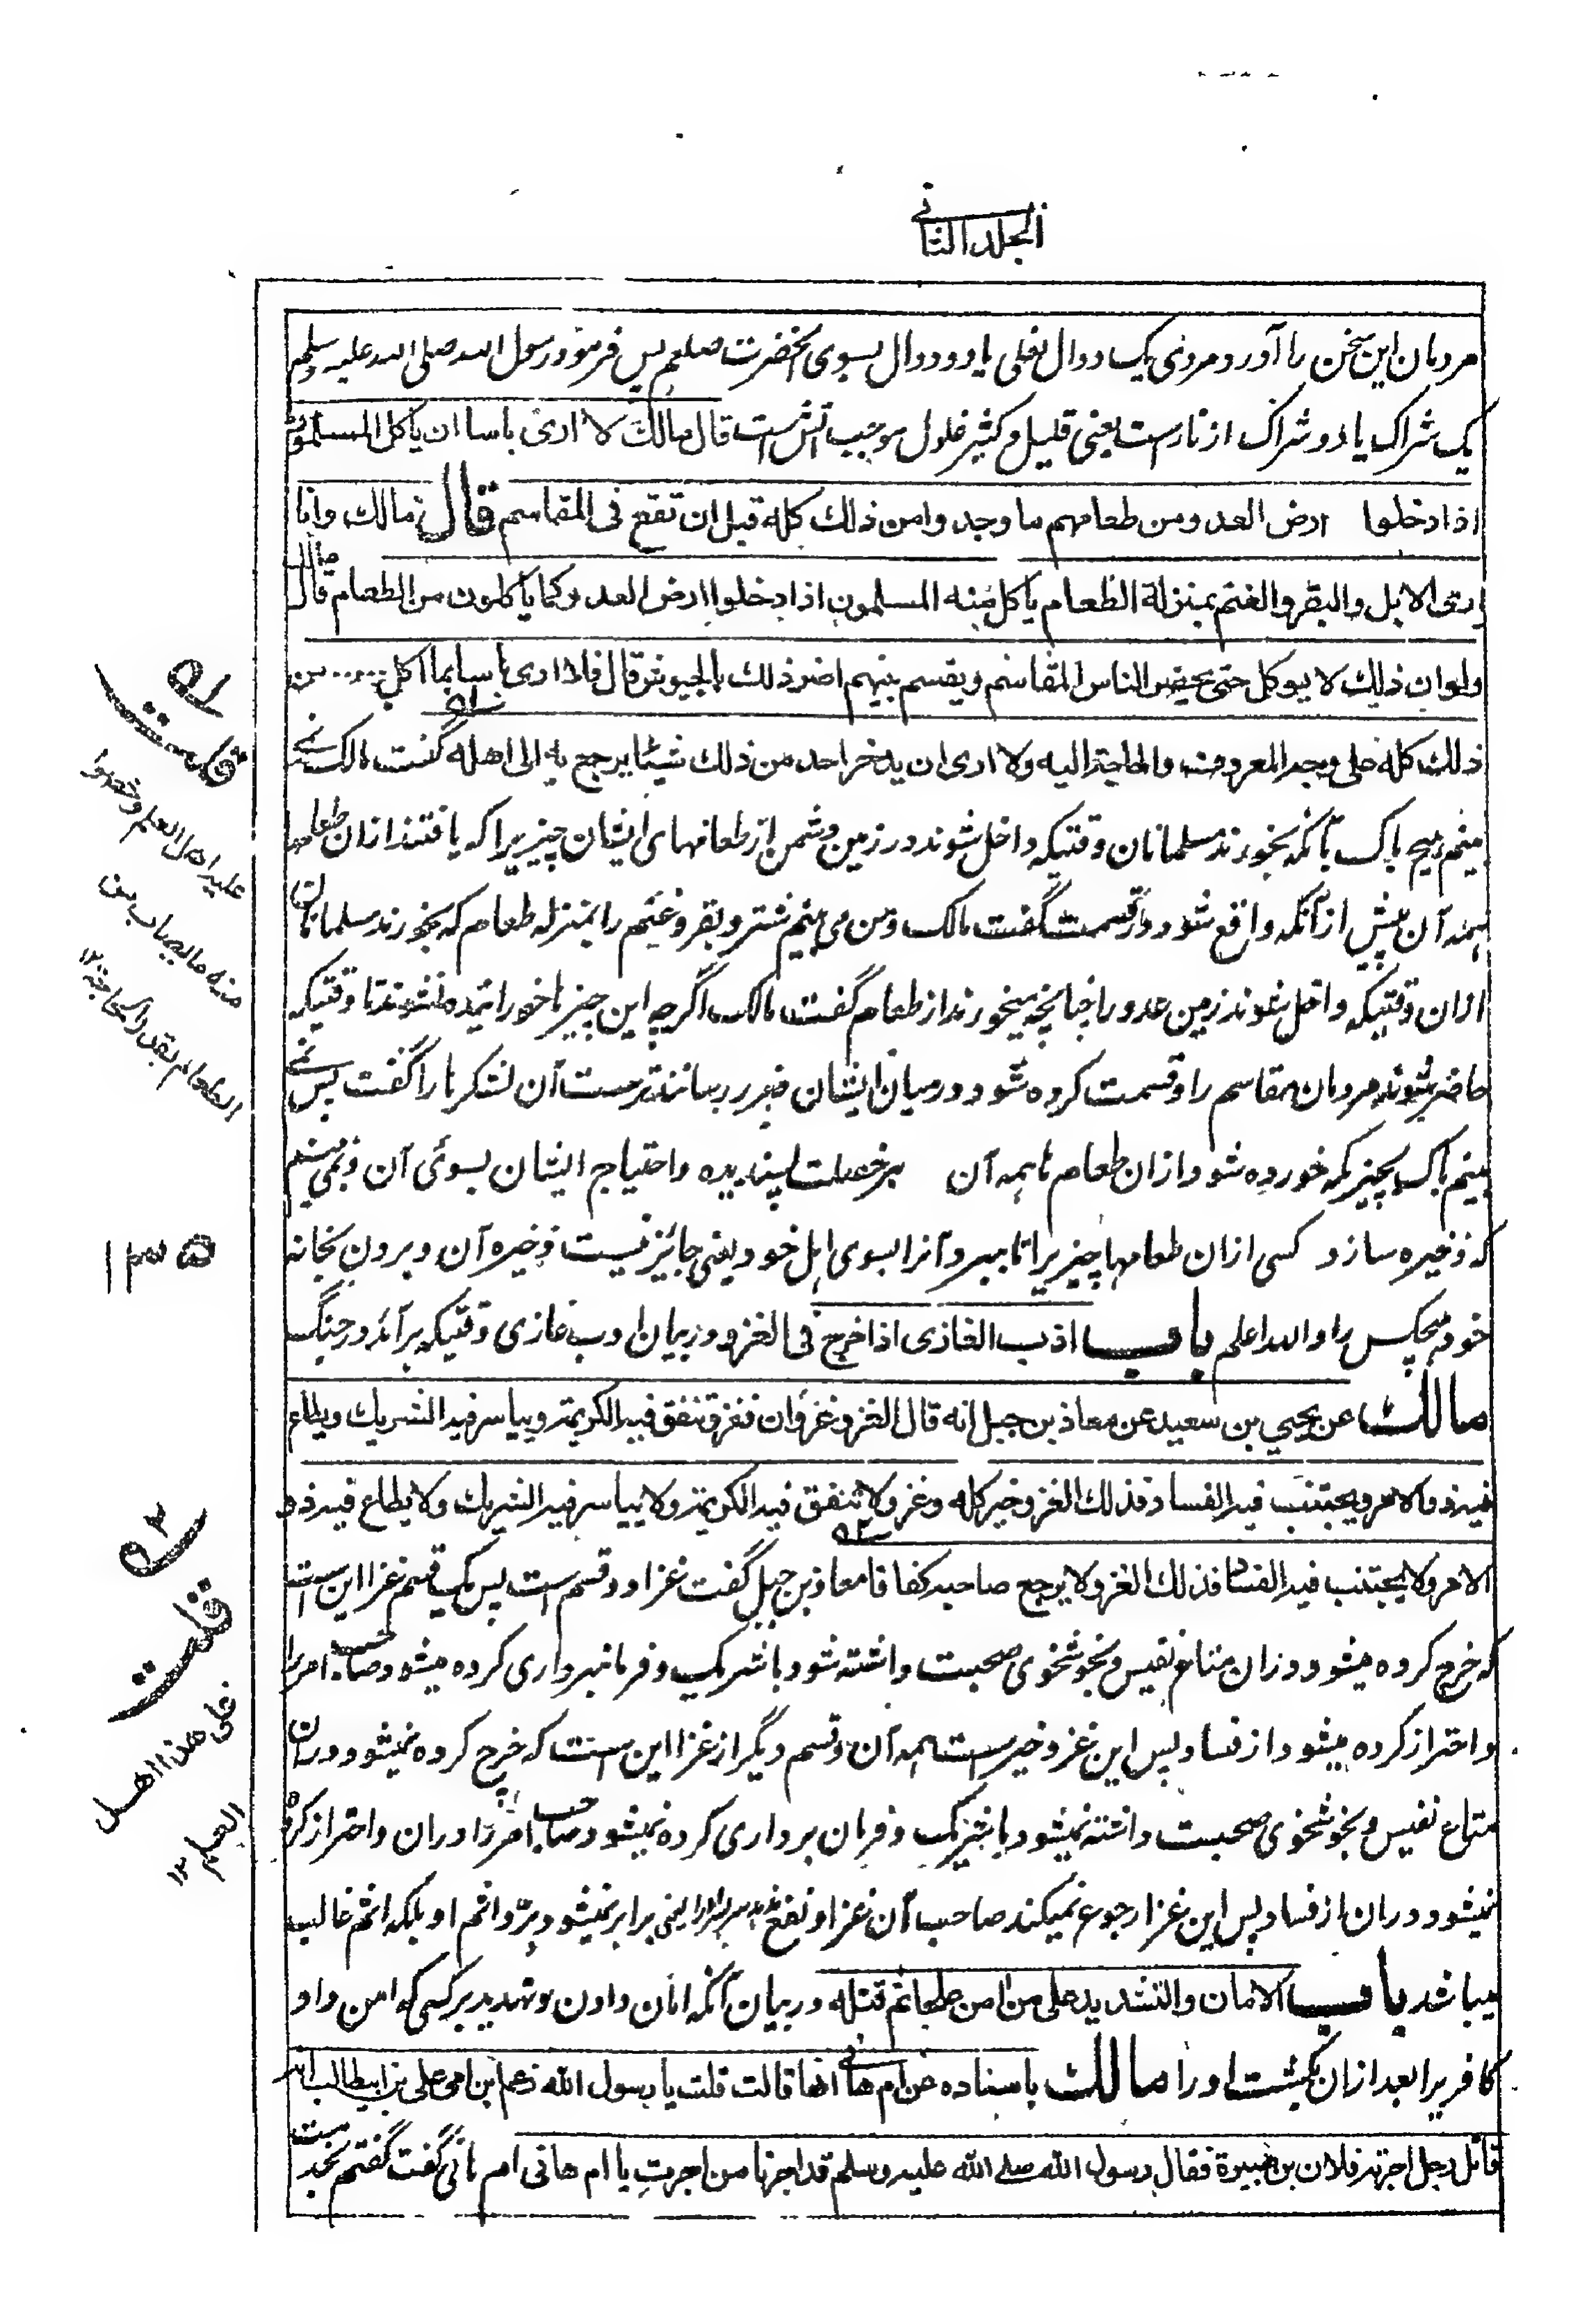 الجلد الثانی
مردمان این سخن را آورد مردی یک دوال نعلی یا دو دوال بسوی آنحضرت صلعم پس فرمود رسول الله صلی الله علیه وسلم
یک شراک یا دو شراک از نارست یعنی قلیل و کثیر غلول موجب آتش است قال مالك لا اری باسا ان یاکل المسلمون
اذا دخلوا ارض العدو من طعامهم ما وجدوا من ذلك کله قبل ان تقع فی المقاسم قال مالك وانا
اری الابل والبقر والغنم بمنزلة الطعام یاکل منه المسلمون اذا دخلوا ارض العدو کما یاکلون من الطعام قال مالك
ولو ان ذلك لا یوکل حتی یحضر الناس المقاسم ویقسم بینهم اضر ذلك بالجیوش قال فلا اری باسا بما اکل من
ذلك کله علی وجه المعروف والحاجة الیه ولا اری ان یدخر احد من ذلك شیئا یرجع به الی اهله گفت مالک نمی
بینم هیچ باک بآنکه بخورند مسلمانان وقتیکه داخل شوند در زمین دشمن از طعامهای ایشان چیزیرا که یافتند ازان طعامها
همه آن پیش از آنکه واقع شود در قسمت گفت مالک ومن می بینم شتر و بقر و غنم را بمنزله طعام که بخورند مسلمانان
ازان وقتیکه داخل شوند زمین عدو را چنانچه میخورند از طعام گفت مالک اگرچه این چیزها خورانیده نشوند تا وقتیکه
حاضر شوند مردمان مقاسم را و قسمت کرده شود درمیان ایشان ضرر رسانند ترست آن لشکرها را گفت پس نمی
بینم باک بچیزیکه خورده شود ازان طعام تا همه آن بر خصلت پسندیده واحتیاج ایشان بسوی آن و نمی بینم
که ذخیره سازد کسی ازان طعامها چیزیرا تا ببرد آنرا بسوی اهل خود یعنی جائز نیست ذخیره آن و بردن بخانه
خود هیچکس را والله اعلم باب ادب الغازی اذا خرج فی الغزو در بیان ادب غازی وقتیکه برآید در جنگ
مالك عن یحیی بن سعید عن معاذ بن جبل انه قال الغزو غزوان فغزو تنفق فیه الکریمة وییاسر فیه الشریك ویطاع
فیه ذو الامر ویجتنب فیه الفساد فذلك الغزو خیر کله وغزو لا تنفق فیه الکریمة ولا ییاسر فیه الشریك ولا یطاع فیه ذو
الامر ولا یجتنب فیه الفساد فذلك الغزو لا یرجع صاحبه کفافا معاذ بن جبل گفت غزا دو قسم است پس یک قسم غزا این است
که خرج کرده میشود دران متاع نفیس و بخوشخوی صحبت داشته شود با شریک و فرمانبرداری کرده میشود صاحب امر را
واحتراز کرده میشود از فساد پس این غزو خیرست همه آن و قسم دیگر از غزا این است که خرج کرده نمیشود دران
متاع نفیس و بخوشخوی صحبت داشته نمیشود با شریک و فرمان برداری کرده نمیشود صاحب امر را دران واحتراز کرده
نمیشود دران از فساد پس این غزا رجوع نمیکند صاحب آن غزا و نفع یعنی برابر نمیشود برّ واثم او بلکه اثم غالب
میباشد باب الامان والتشدید علی من امن علجا ثم قتله در بیان آنکه امان دادن و تهدید بر کسی که امن داد
کافریرا بعد ازان بکشت او را مالك باسناده عن ام هانی انها قالت قلت یا رسول الله زعم ابن امی علی بن ابیطالب انه
قاتل رجل اجرته فلان بن هبیرة فقال رسول الله صلے الله علیه وسلم قد اجرنا من اجرت یا ام هانی ام هانی گفت گفتم بخدمت
قلت
علیه اهل العلم وخصوا
منه مالیصاب من
الطعام بقدر الحاجة ۱۲
۱۳۵
قلت
علی هذا اهل
العلم ۱۲